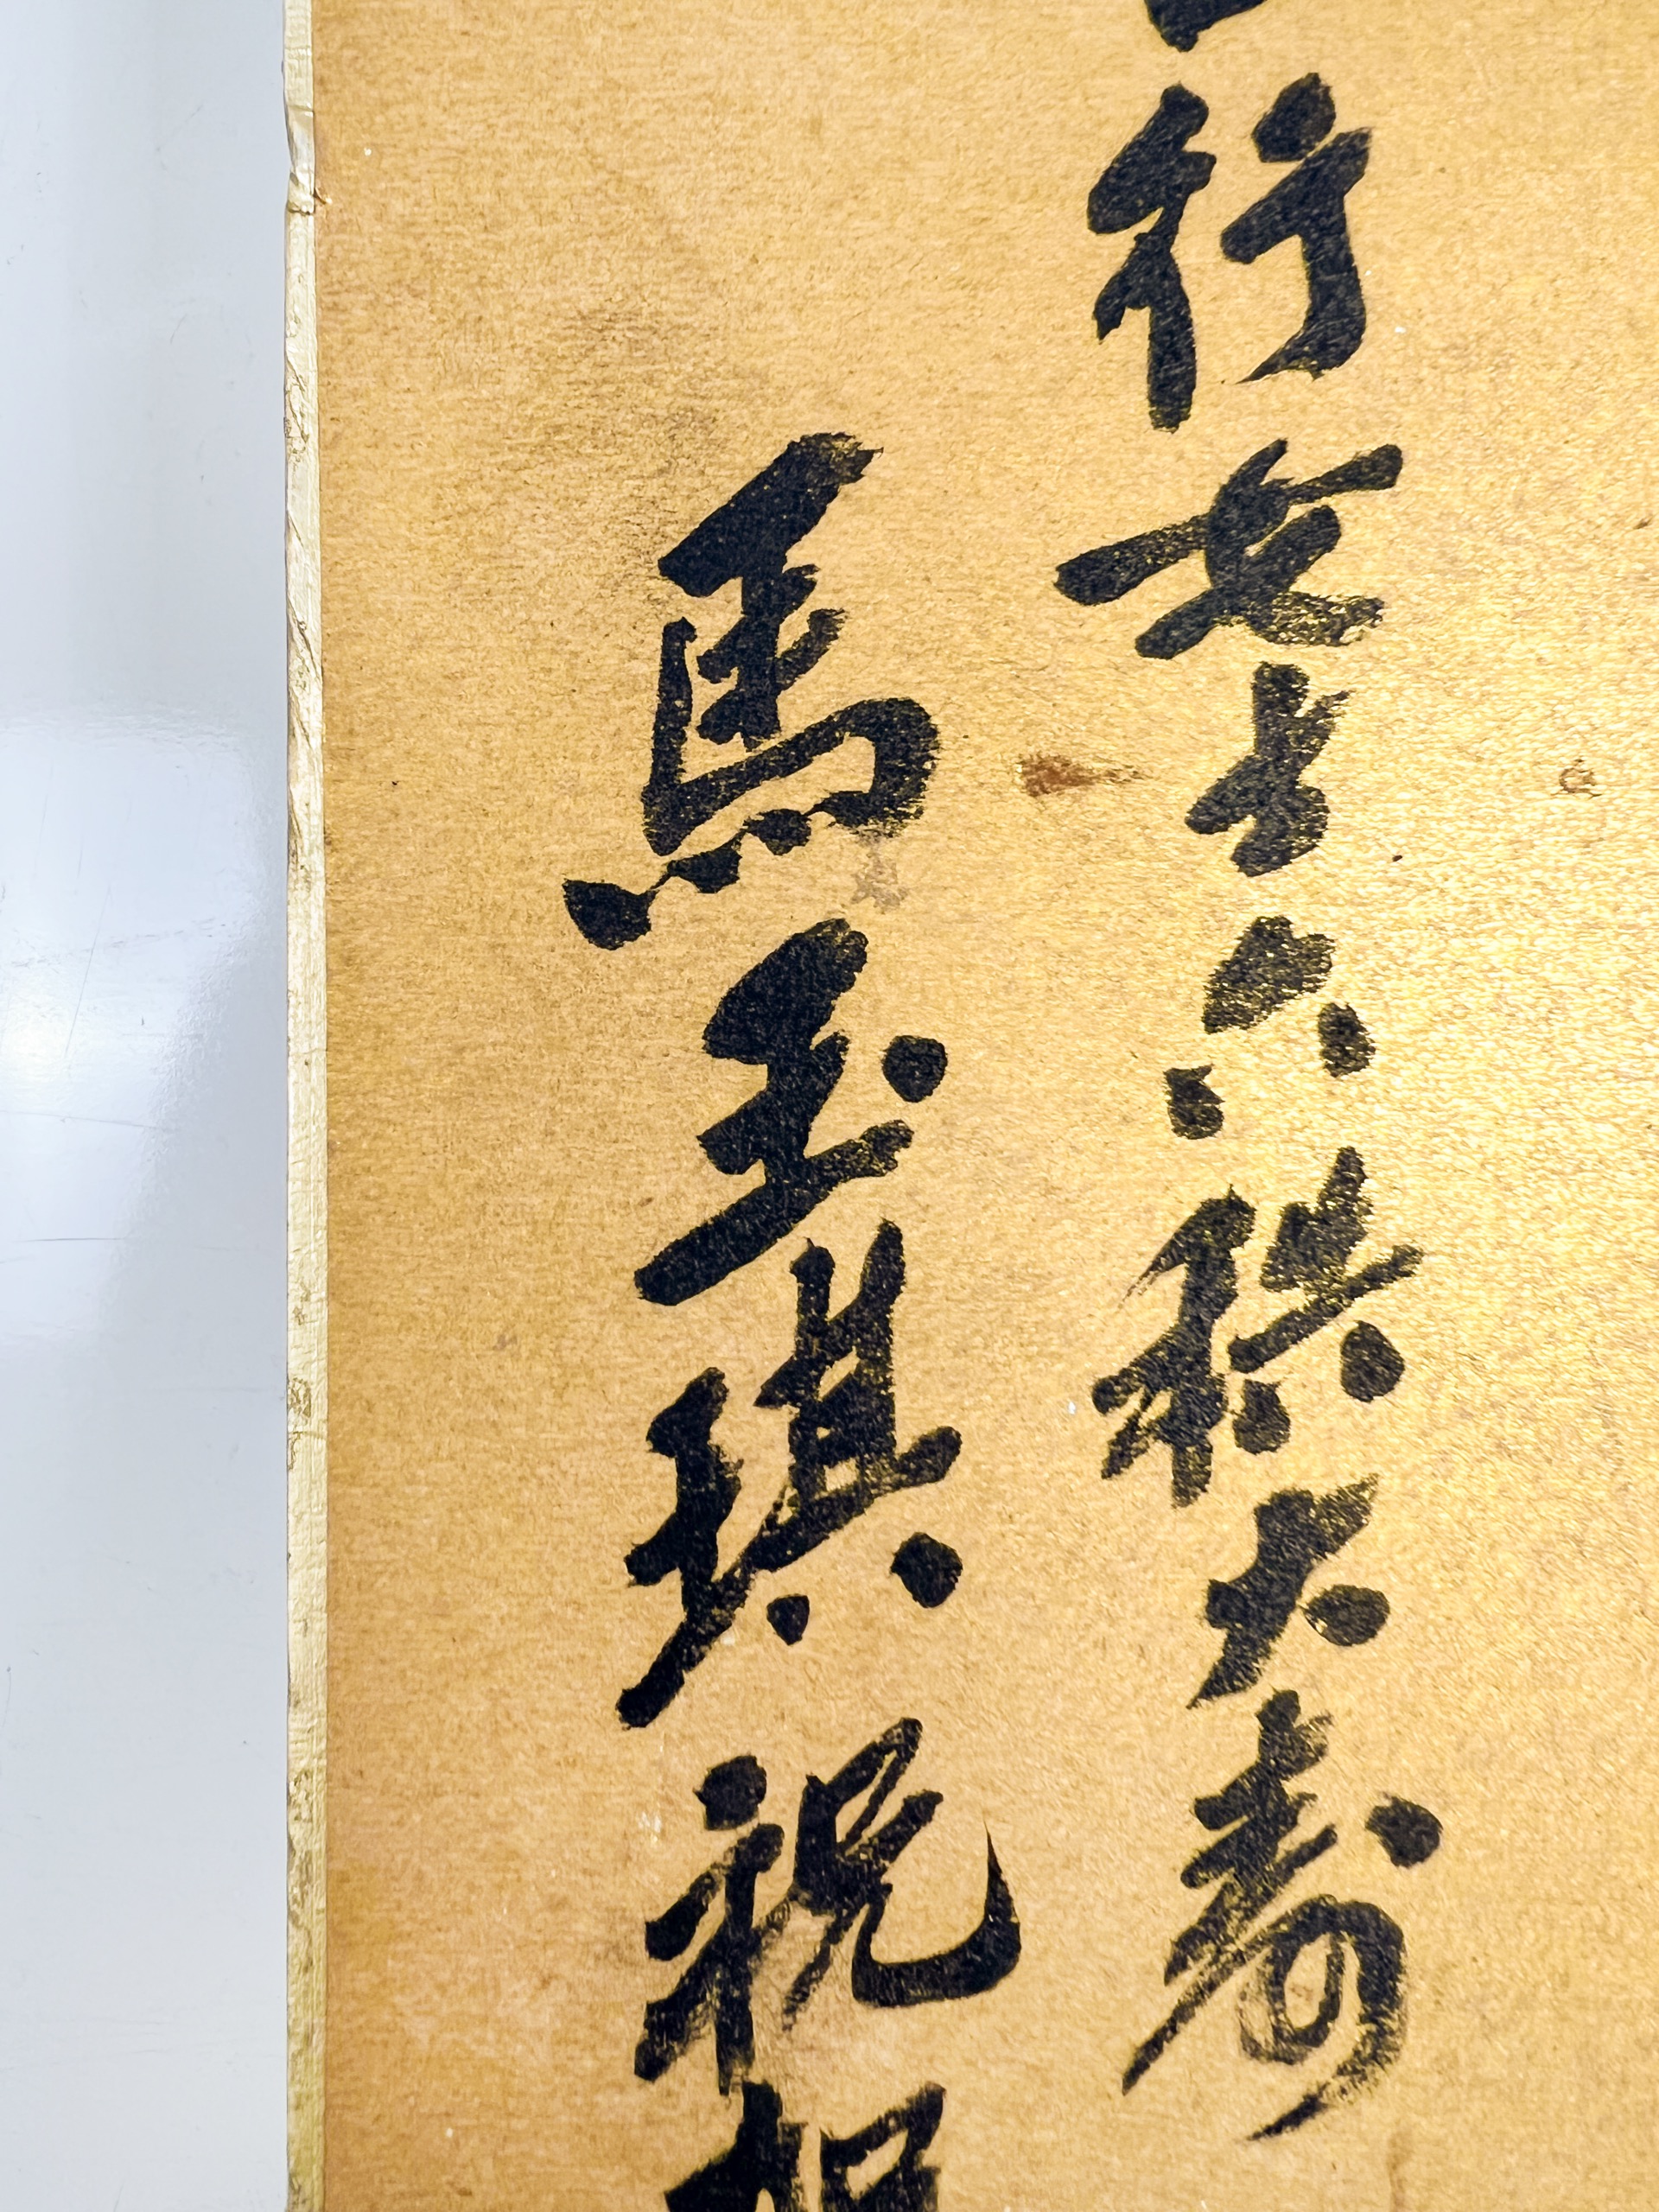 行女士六秩大壽
馬玉琪祝